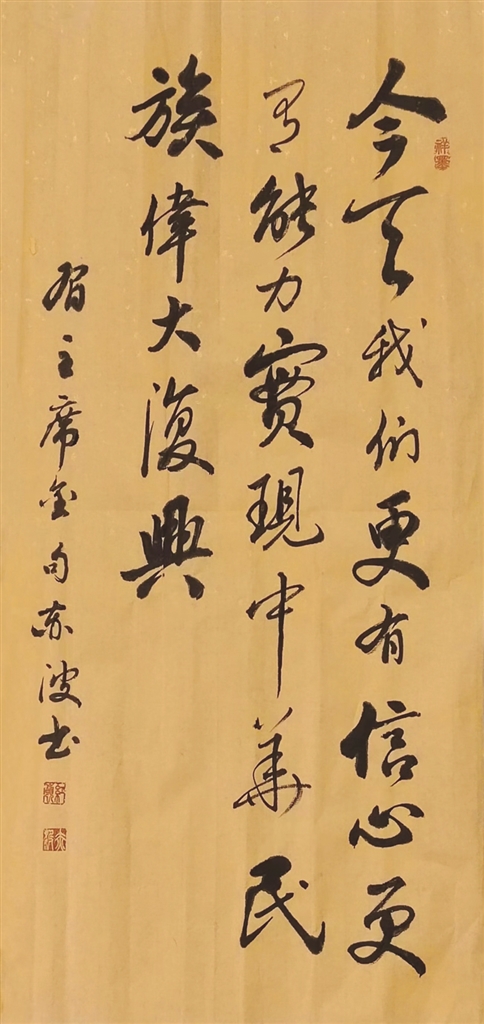 今天我们更有信心更
有能力實現中華民
族偉大復興
習主席金句赤波书